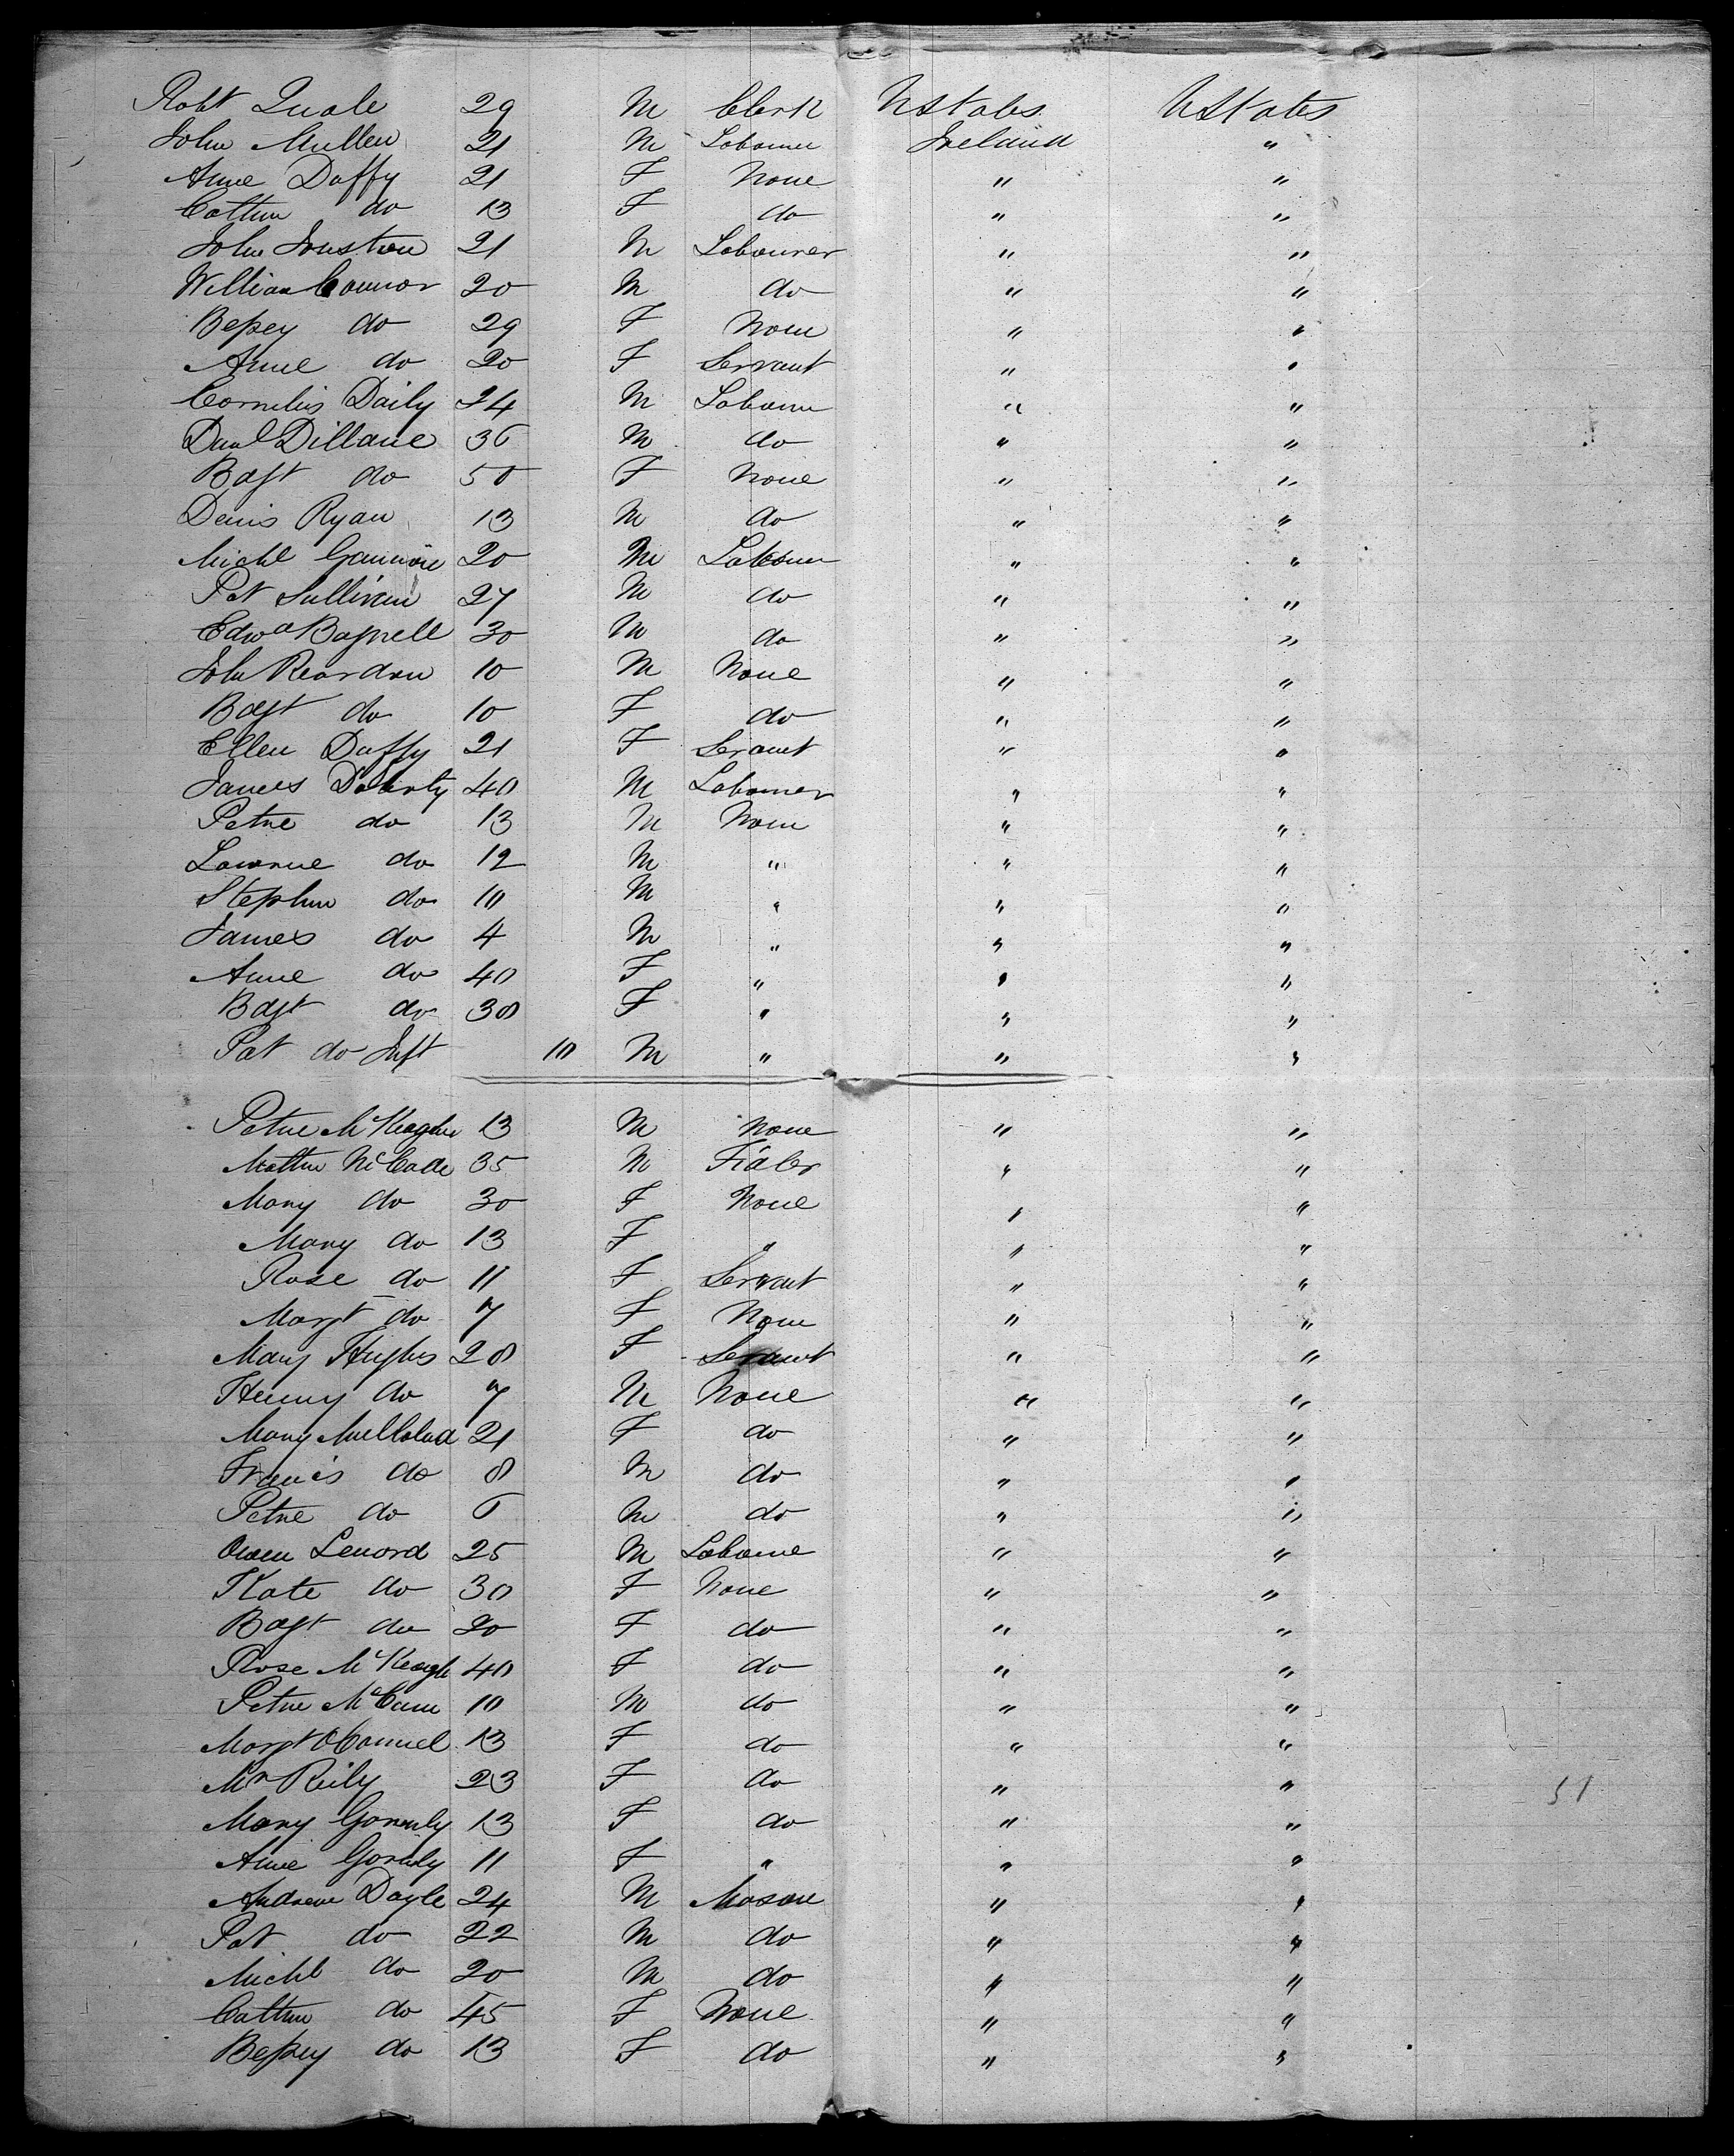 Robt Quale 29 M Clerk UStates UStates
John Mullen 21 M Labourer Ireland "
Anne Duffy 21 F None " "
Cathne do 13 F do " "
John Jonston 21 M Labourer " "
William Connor 20 M do " "
Bessey do 29 F None " "
Anne do 20 F Servant " "
Cornelius Daily 24 M Labourer " "
Danl Dillane 36 M do " "
do 50 F None " "
Denis Ryan 13 M do " "
Michl 20 M Labour " "
Pat Sullivan 27 M do " "
Edwd Bagnell 30 M do " "
John Reardon 10 M None " "
do 10 F do " "
Ellen Duffy 21 F Servant " "
James Doherty 40 M Labourer " "
Peter do 13 M None " "
Lawrence do 12 M " " "
Stephen do 10 M " " "
James do 4 M " " "
Anne do 40 F " " "
do 30 F " " "
Pat do Inft 10 M " " "
Peter 13 M None " "
Matthew McCabe 35 M Fidler " "
Mary do 30 F None " "
Mary do 13 F " " "
Rose do 11 F Servant " "
Margt do 7 F None " "
Mary Hughes 28 F Servant " "
Henry do 7 M None " "
Mary Mulloland 21 F do " "
Francis do 8 M do " "
Peter do 6 M do " "
Owen Lenord 25 M Laborer " "
Kate do 30 F None " "
do 20 F do " "
Rose McKeogh 40 F do " "
Peter McCann 10 M do " "
Margt OConnel 13 F do " "
Mrs Reily 23 F do " "
51
Mary Gormly 13 F do " "
Anne Gormly 11 F " " "
Andrew Doyle 24 M Mason " "
Pat do 22 M do " "
Michl do 20 M do " "
Cathne do 45 F None " "
Bessey do 13 F do " "